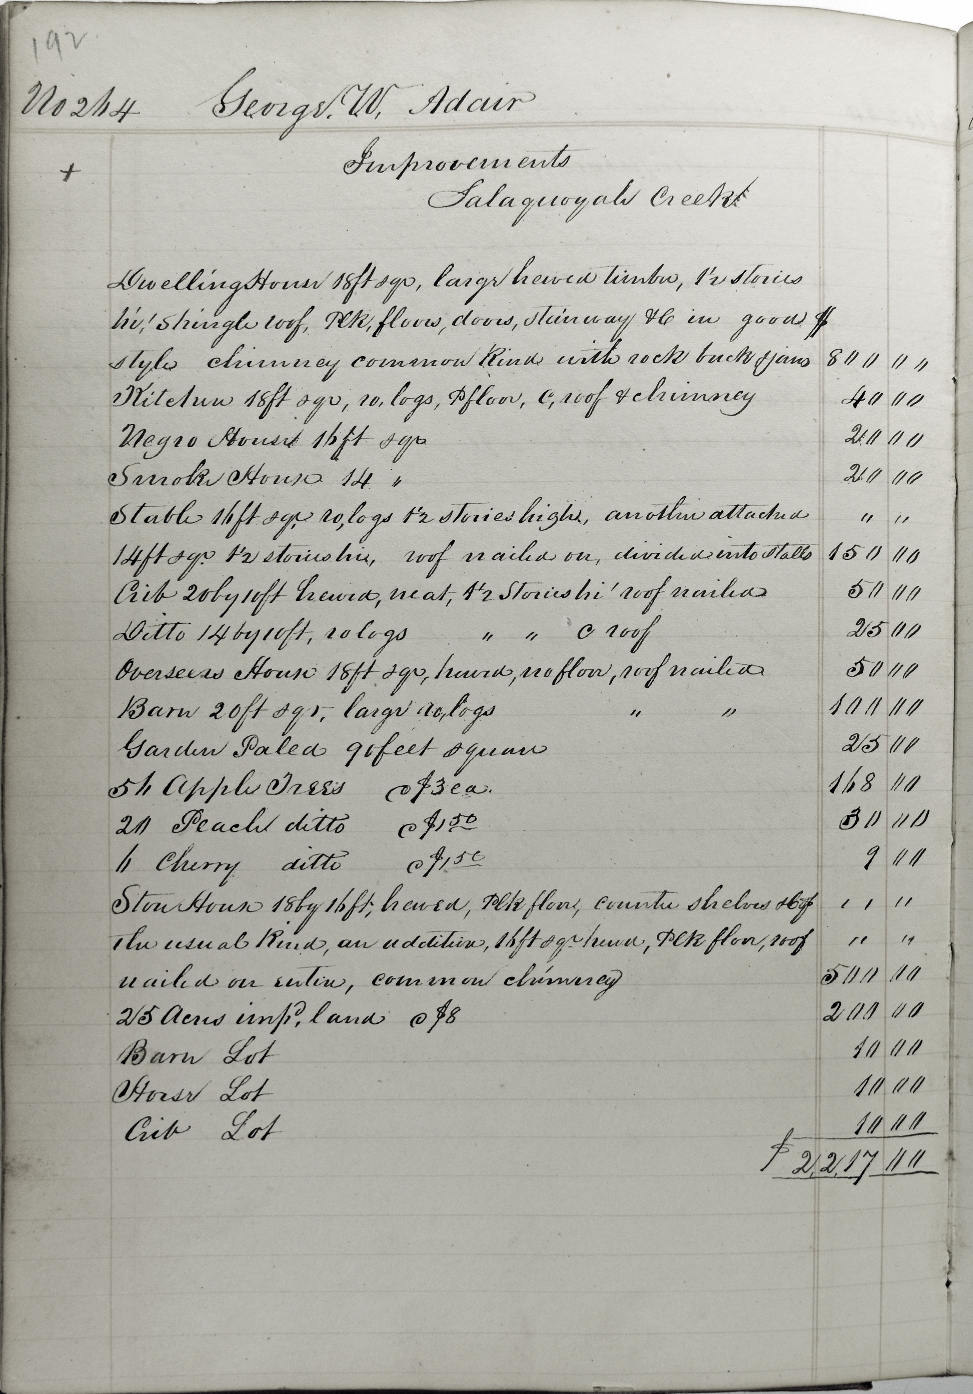 192
No 264 George W. Adair
+ Improvements
Salaquoyah Creek
Dwelling House 18ft sqr, large hewed timber, 1½ stories
hi,! Shingle roof, Plk, floors, doors, stairway &C in good $
style chimney common kind with rock back & jams 800 " "
Kitchen 18ft sqr, ro, logs, Pfloor, C, roof & chimney 40 00
Negro House 16ft sqr 20 00
Smoke House 14 " 20 00
Stable 16ft sqr ro, logs 1½ stories high, another attached " "
14ft sqr 1½ stories hi, roof nailed on, divided into stalls 150 00
Crib 20 by 10ft hewed, neat, 1½ Stories hi' roof nailed 50 00
Ditto 14 by 10ft, ro logs " " C roof 25 00
Overseers House 18ft sqr, hewed, no floor, roof nailed 50 00
Barn 20ft sqr, large ro, logs " " 100 00
Garden Paled 90 feet square 25 00
56 Apple Trees @ $3 ea. 168 00
20 Peach ditto @ $1 50 30 00
6 Cherry ditto @ $1 50 9 00
Store House 18 by 16ft, hewed, Plk floor, counter shelves &C of " " "
the usual kind, an addition, 16ft sqr hewed, Plk floor, roof " "
nailed on entire, common chimney 500 00
25 Acres imp, land @ $8 200 00
Barn Lot 10 00
House Lot 10 00
Crib Lot 10 00
$ 2,217 00